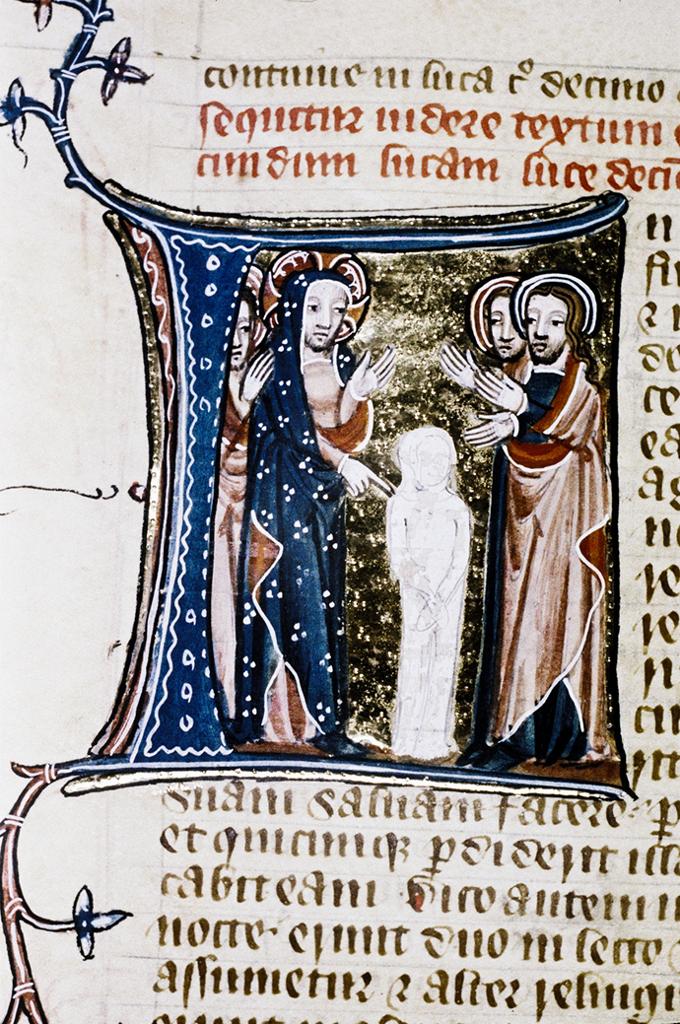 continue in luca c° decimo
sequitur videre textum
cundum lucam luce deci
n
fi
de
ce
ea
ag
no
re
re
n
cu
suam saluam facere p
et quicumq perdiderit illa
cabit eam Dico autem
nocte erunt duo in lecto
assumetur et alter relinqu